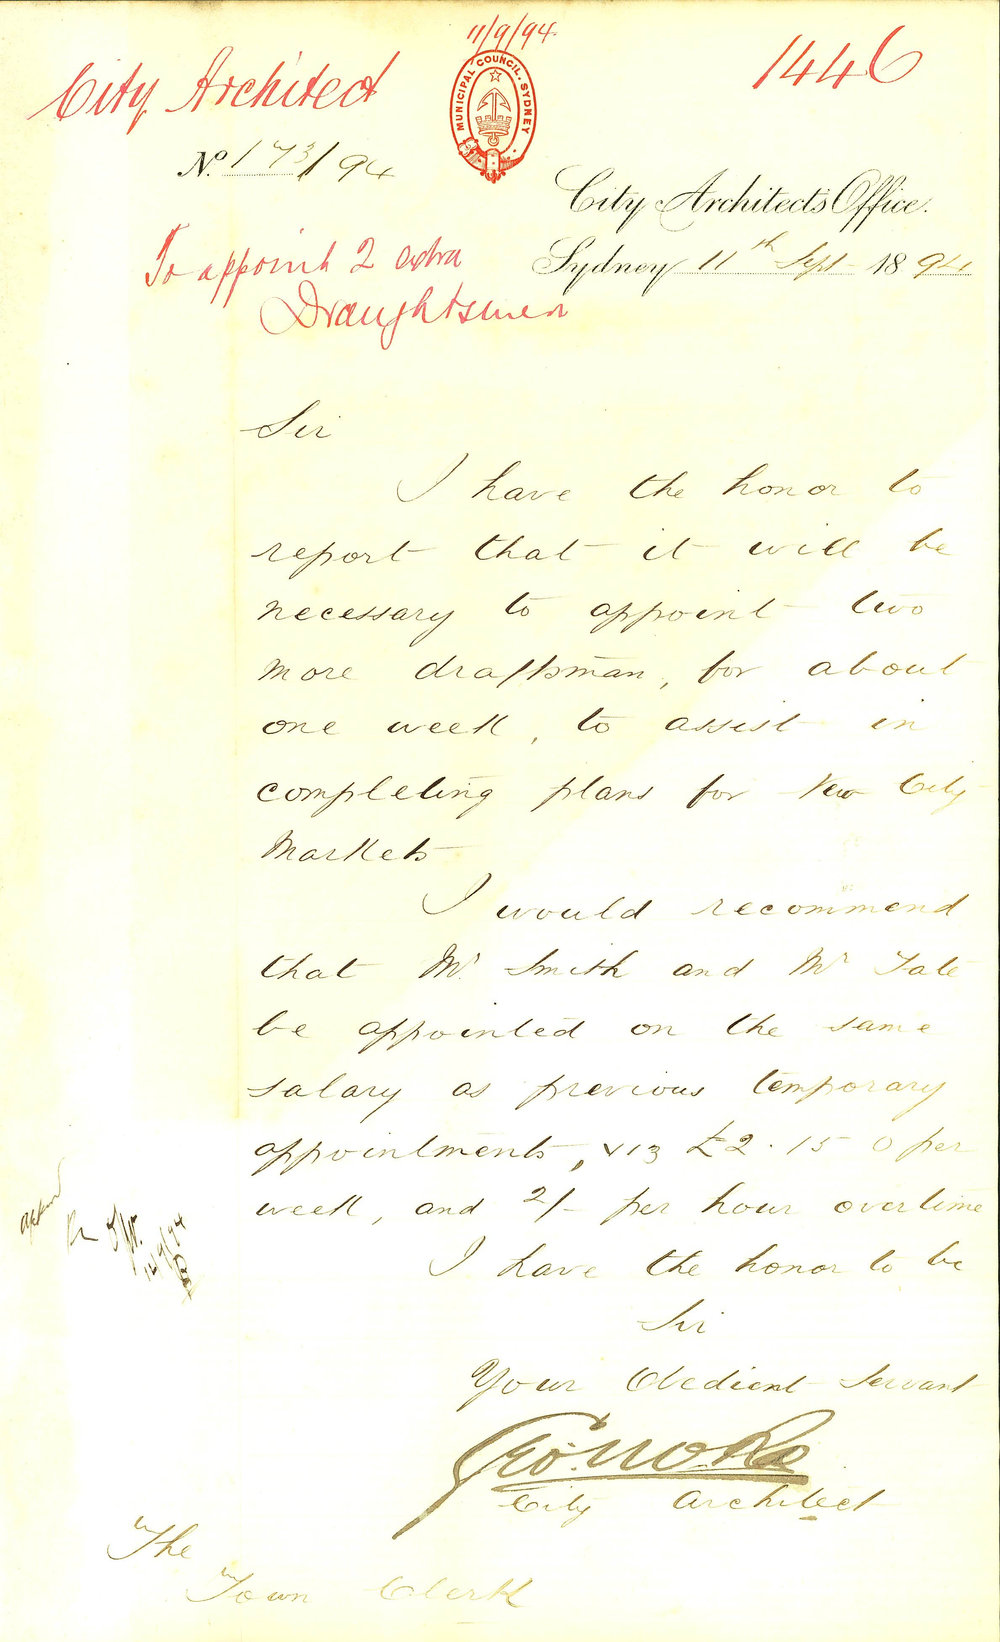 11/9/94
1446
City Architect
MUNICIPAL COUNCIL. SYDNEY
No. 173/94
City Architects Office.
Sydney 11th Sept 1894
To appoint 2 extra
Draughtsmen
Sir
I have the honor to
report that it will be
necessary to appoint two
more draftsman, for about
one week, to assist in
completing plans for New City
Markets
I would recommend
that Mr. Smith and Mr Tate
be appointed on the same
salary as previous temporary
appointments, viz £2.15 0 per
week, and 2/- per hour overtime
12/9/94
I have the honor to be
Sir
Your Obedient Servant
Geo. McRae
City Architect
The
Town Clerk